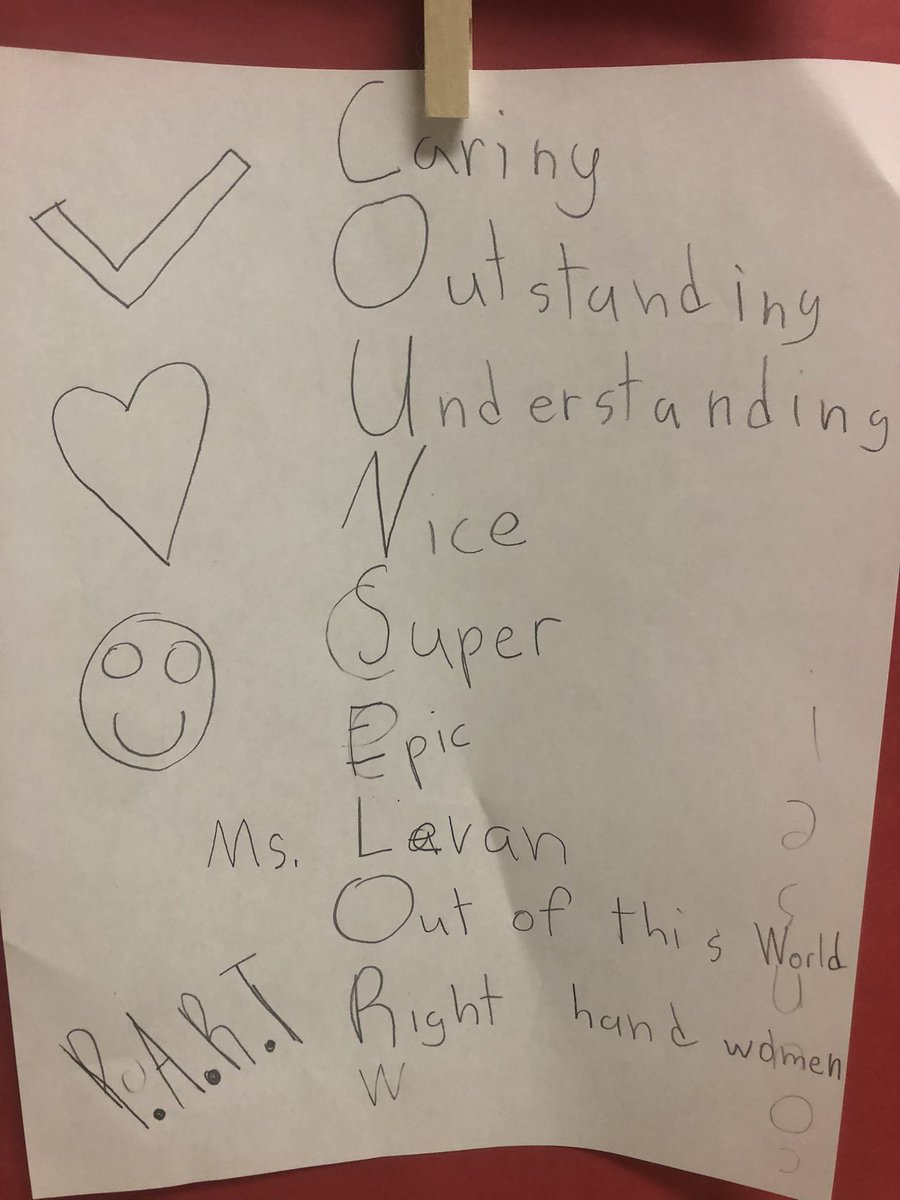 Caring
Outstanding
Understanding
Nice
Super
Epic
Ms. Levan
Out of this World
Right hand women
W
P.A.R.T